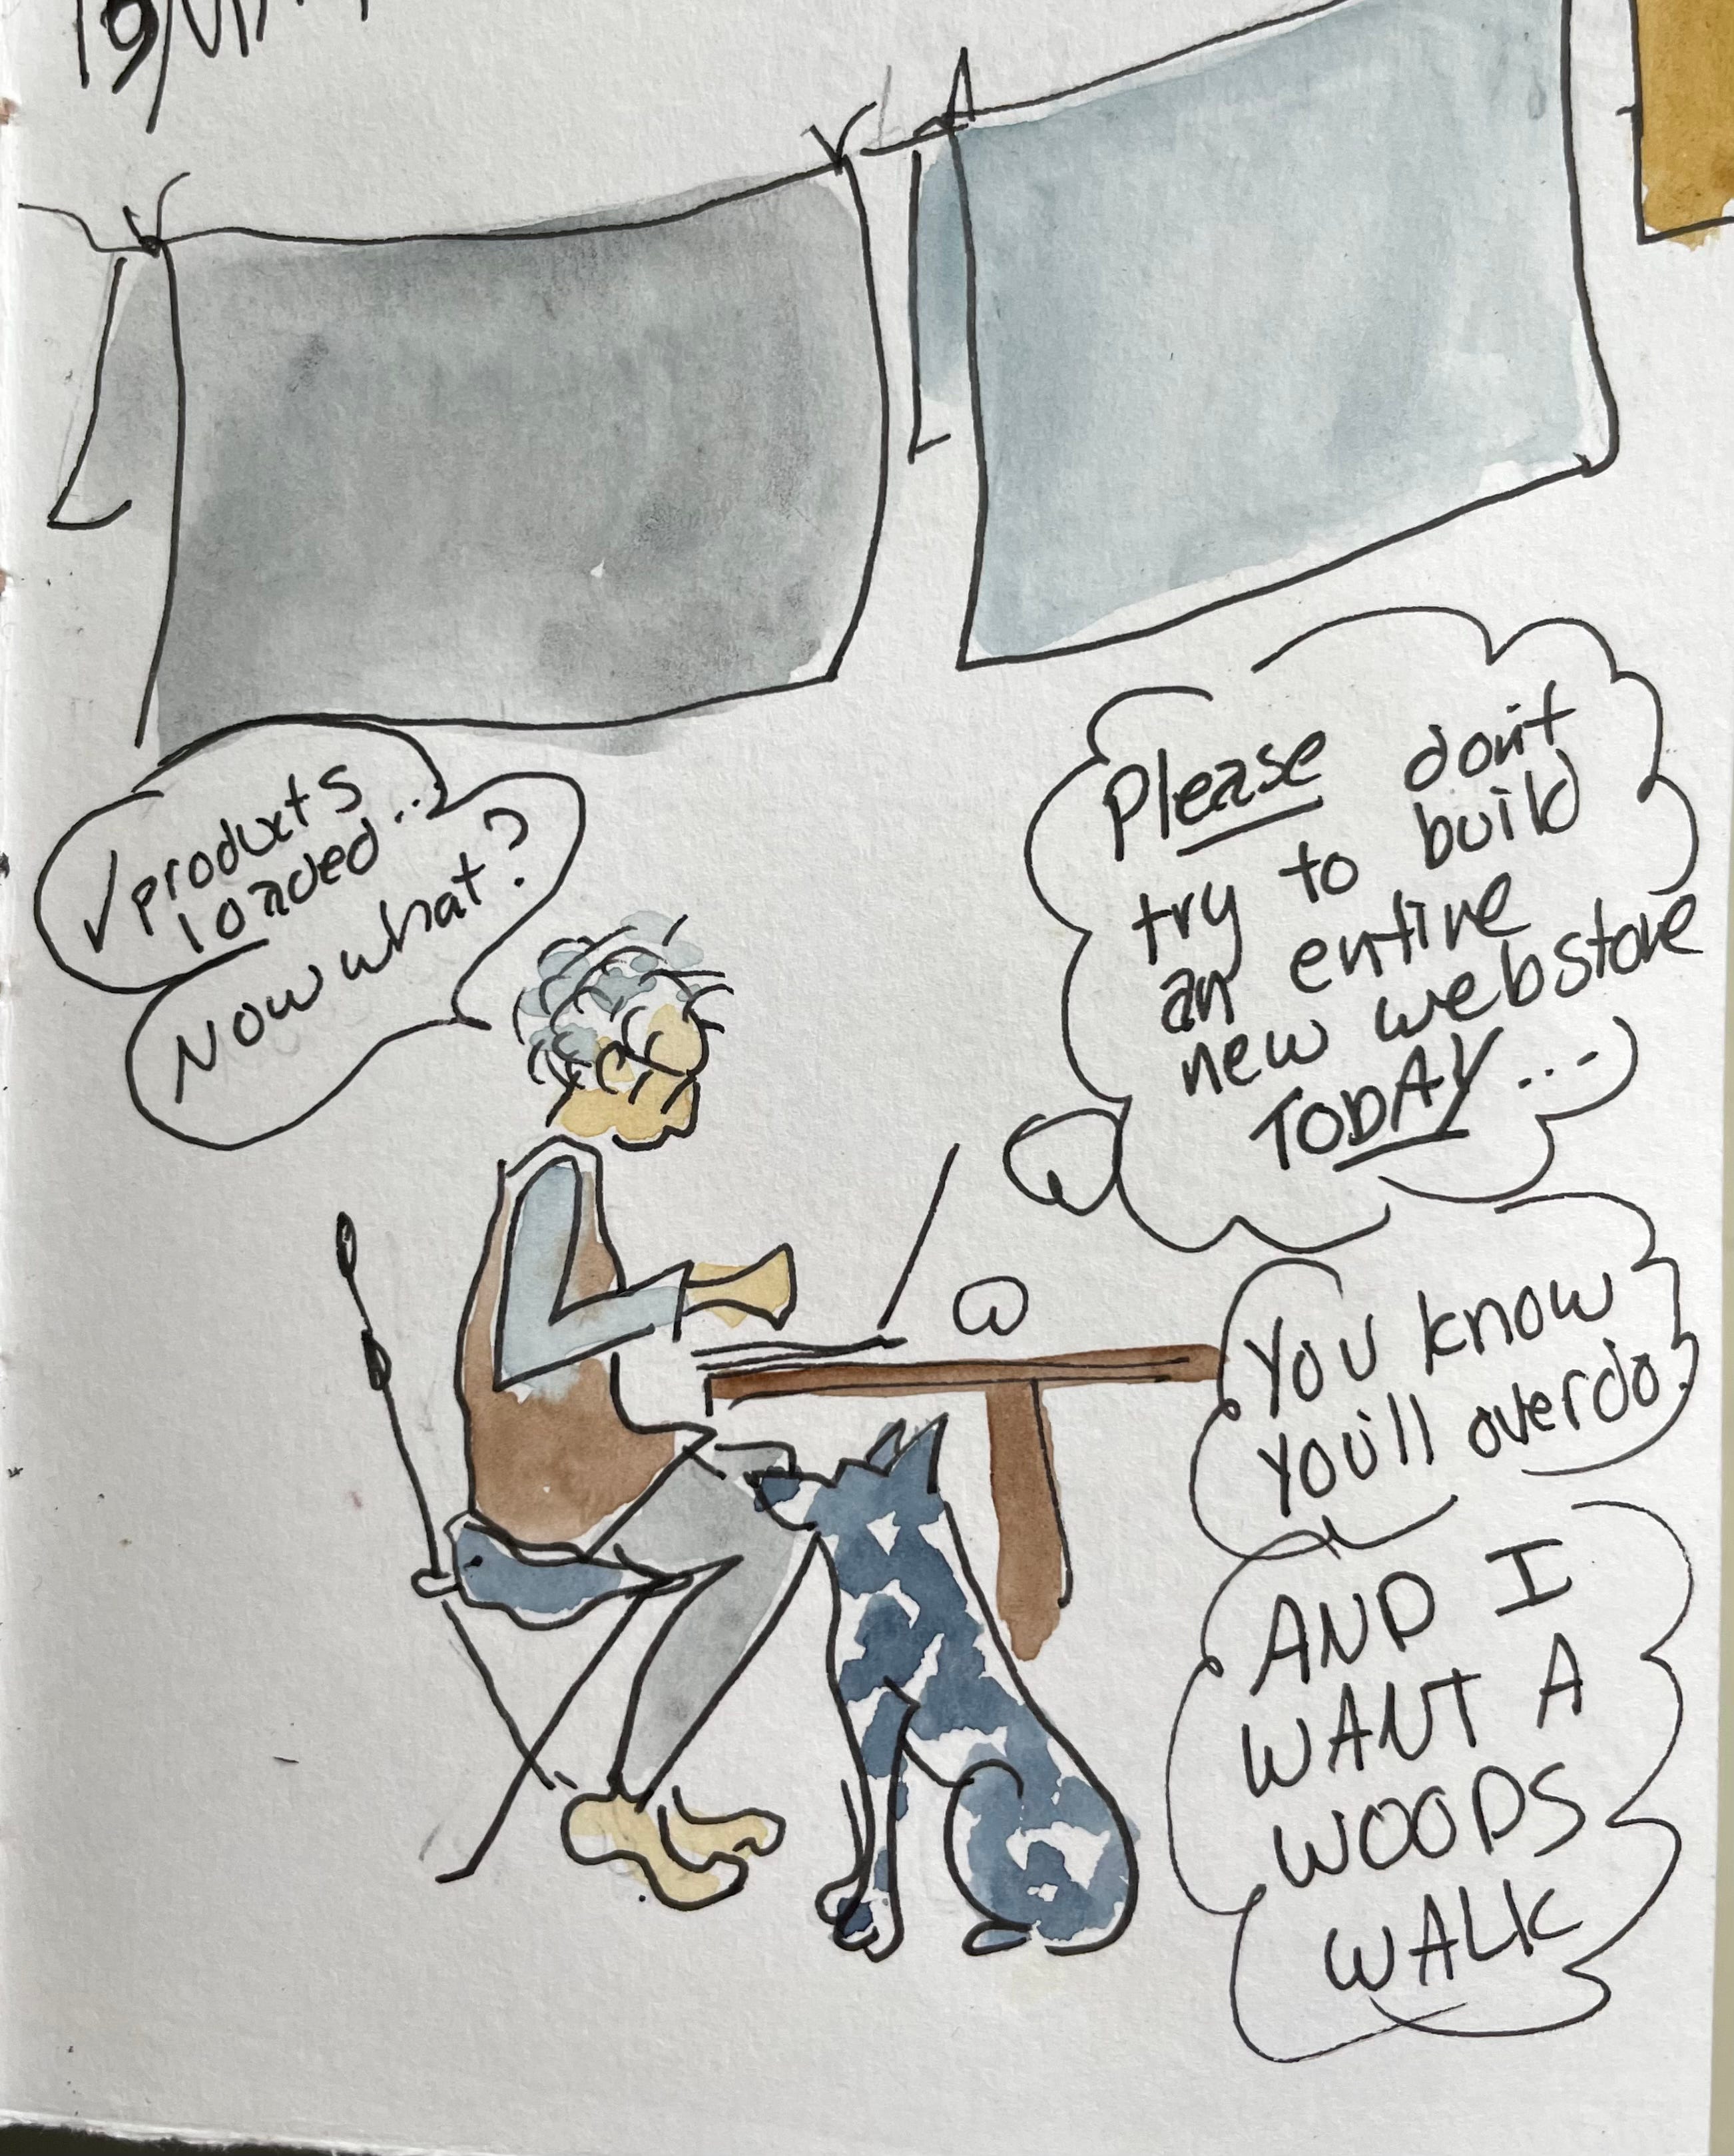 ✓products
loaded...
Now what?
Please don't
try to build
an entire
new webstore
TODAY...
You know
you'll overdo.
AND I
WANT A
WOODS
WALK